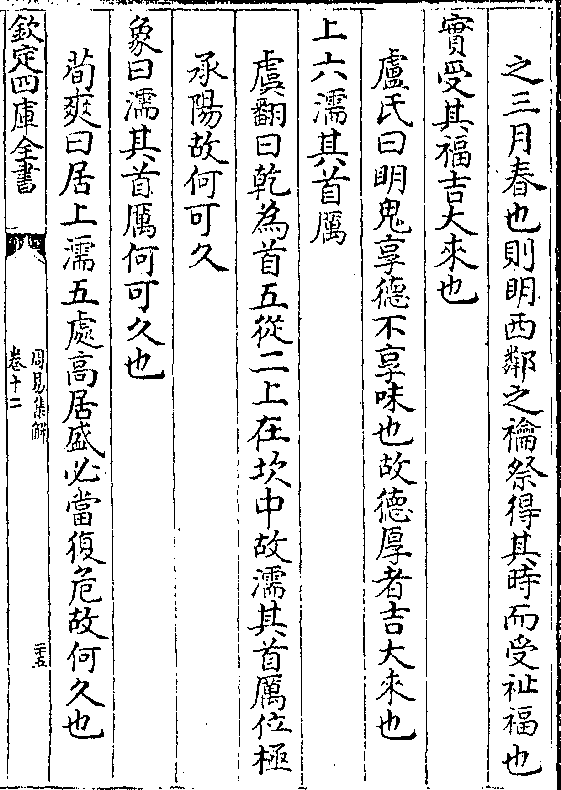 之三月春也則明西鄰之禴祭得其時而受祉福也
實受其福吉大來也
盧氏曰明鬼享德不享味也故德厚者吉大來也
上六濡其首厲
虞翻曰乾為首五從二上在坎中故濡其首厲位極
承陽故何可久
象曰濡其首厲何可久也
荀爽曰居上濡五處高居盛必當復危故何久也
欽定四庫全書
周易集解
卷十二
二十五